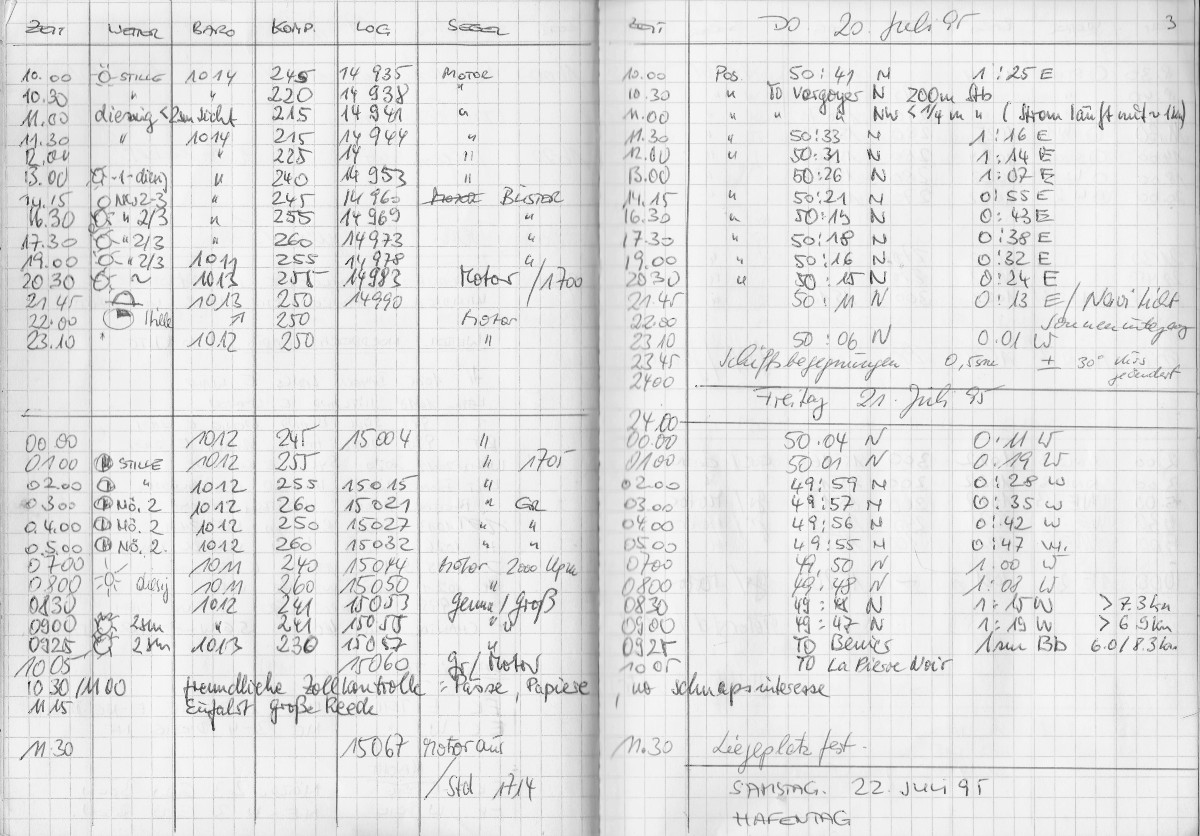 ZEIT WETTER BARO KOMP. LOG SEGEL
10.00 STILLE 1014 245 14 935 MOTOR
10.30 " " 220 14 938 "
11.00 diesig <2sm sicht 215 14 941 "
11.30 " 1014 215 14 944 "
12.00 " 225 14 "
13.00 -1-diesig " 240 14 953 "
14.15 NW 2-3 " 245 14 960 BLISTER
16.30 " 2/3 " 255 14 969 "
17.30 " 2/3 " 260 14973 "
19.00 " 2/3 1011 255 14 978 "
20 30 ~ 1013 255 14983 Motor/1700
21 45 1013 250 14990
22.00 Stille ↗ 250 Motor
23.10 " 1012 250 "
00.00 1012 245 15004 "
01 00 STILLE 1012 255 " 1705
02.00 " 1012 255 15015 "
0300 NÖ. 2 1012 260 15021 " GR
04.00 NÖ. 2 1012 250 15027 " "
05.00 NÖ. 2. 1012 260 15032 " "
0700 1011 240 15044 Motor 2000 Upm
0800 diesig 1011 260 15050 "
0830 1012 241 15053 genua/Groß
0900 2sm " 241 15055 "
0925 2sm 1013 230 15057 "
1005 15060 gr/Motor
10 30/1100 freundliche Zollkontrolle = Pässe, Papiere
11 15 Einfahrt große Reede
11.30 15067 Motor aus
/Std 1714
ZEIT DO 20. Juli 95 3
10.00 Pos. 50:41 N 1:25 E
10.30 " TO Vergoyer N 200m Stb
11.00 " " " NW <1/4 m " (Strom läuft mit ~1kn)
11.30 " 50:33 N 1:16 E
12.00 " 50:31 N 1:14 E
13.00 50:26 N 1:07 E
14.15 " 50:21 N 0:55 E
16.30 " 50:19 N 0:43 E
17.30 " 50:18 N 0:38 E
19.00 " 50:16 N 0:32 E
20 30 " 50:15 N 0:24 E
21.45 50:11 N 0:13 E/Navi licht
22.00 Sonnenuntergang
23 10 50:06 N 0.01 W
23 45 Schiffsbegegnungen 0,5sm ± 30° Kurs
2400 geändert
Freitag 21. Juli 95
24.00
00.00 50.04 N 0:11 W
01 00 50 01 N 0.19 W
02.00 49:59 N 0:28 W
03.00 49:57 N 0:35 W
04.00 49:56 N 0:42 W
0500 49:55 N 0:47 W.
0700 49,50 N 1:00 W
0800 49:48 N 1:08 W
0830 49:48 N 1:15 W >7.3kn
0900 49:47 N 1:19 W >6.9kn
0925 TO 1sm Bb 6.0/8.3kn
1005 TO La Piere Noir
, no schnapsinteresse
11.30 Liegeplatz fest.
SAMSTAG. 22. JULI 95
HAFENTAG